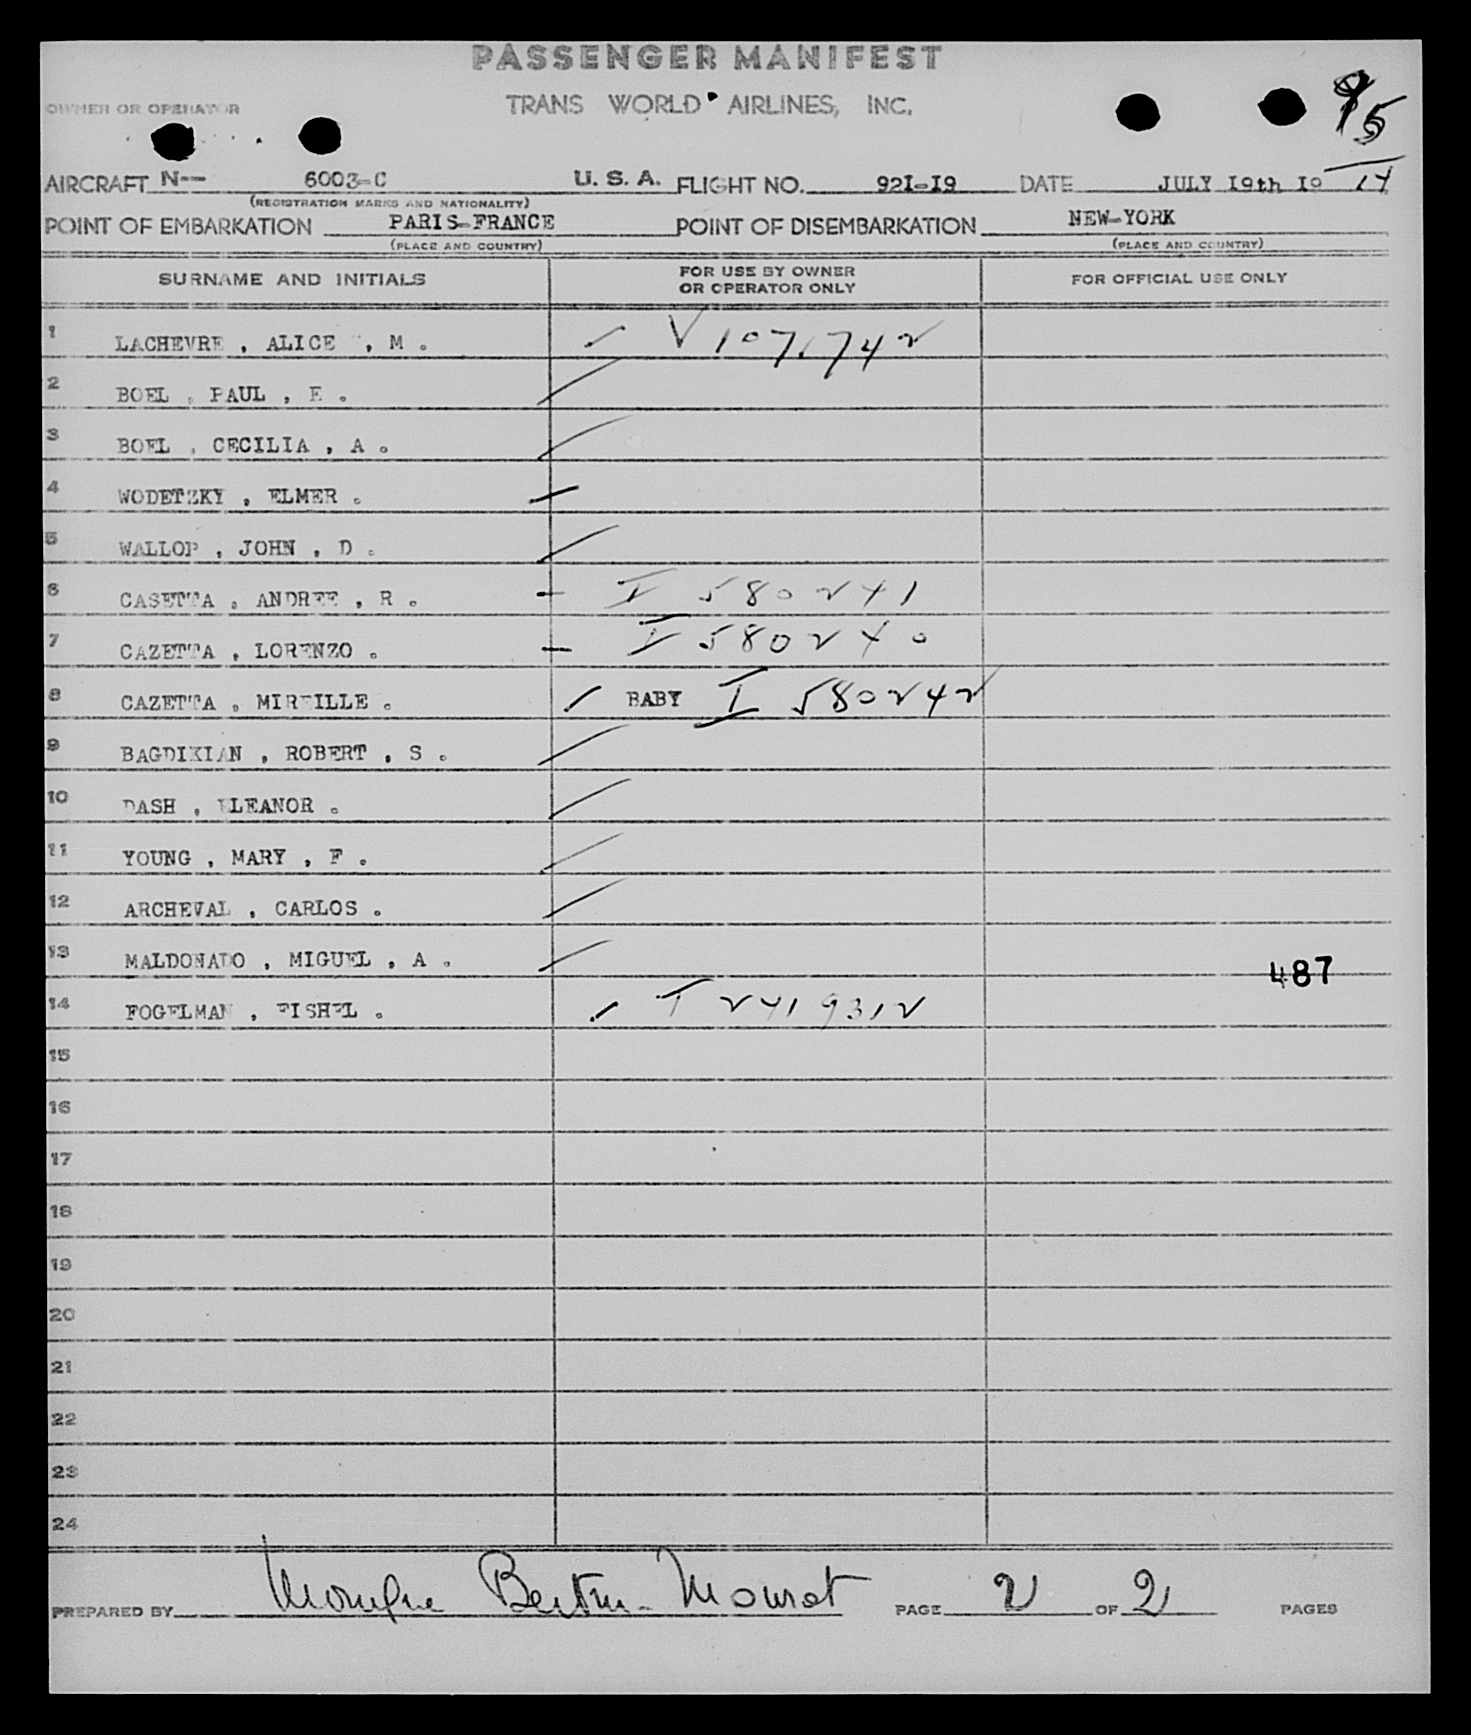 PASSENGER MANIFEST
OWNER OR OPERATOR
TRANS WORLD AIRLINES, INC.
AIRCRAFT N-- 6003-C U. S. A. FLIGHT NO. 92I-I9 DATE JULY I9th I9
(REGISTRATION MARKS AND NATIONALITY)
POINT OF EMBARKATION PARIS-FRANCE POINT OF DISEMBARKATION NEW-YORK
(PLACE AND COUNTRY) (PLACE AND COUNTRY)
SURNAME AND INITIALS FOR USE BY OWNER OR OPERATOR ONLY FOR OFFICIAL USE ONLY
1 LACHEVRE , ALICE , M . V 107,742
2 BOEL , PAUL , E .
3 BOEL , CECILIA , A .
4 WODETZKY , ELMER .
5 WALLOP , JOHN , D .
6 CASETTA , ANDREE , R . I 580241
7 CAZETTA , LORENZO . I 580240
8 CAZETTA , MIREILLE . BABY I 580242
9 BAGDIKIAN , ROBERT , S .
10 DASH , ELEANOR .
11 YOUNG , MARY , F .
12 ARCHEVAL , CARLOS .
13 MALDONADO , MIGUEL , A .
487
14 FOGELMAN , FISHEL . T 2419312
15
16
17
18
19
20
21
22
23
24
PREPARED BY Monique PAGE 2 OF 2 PAGES